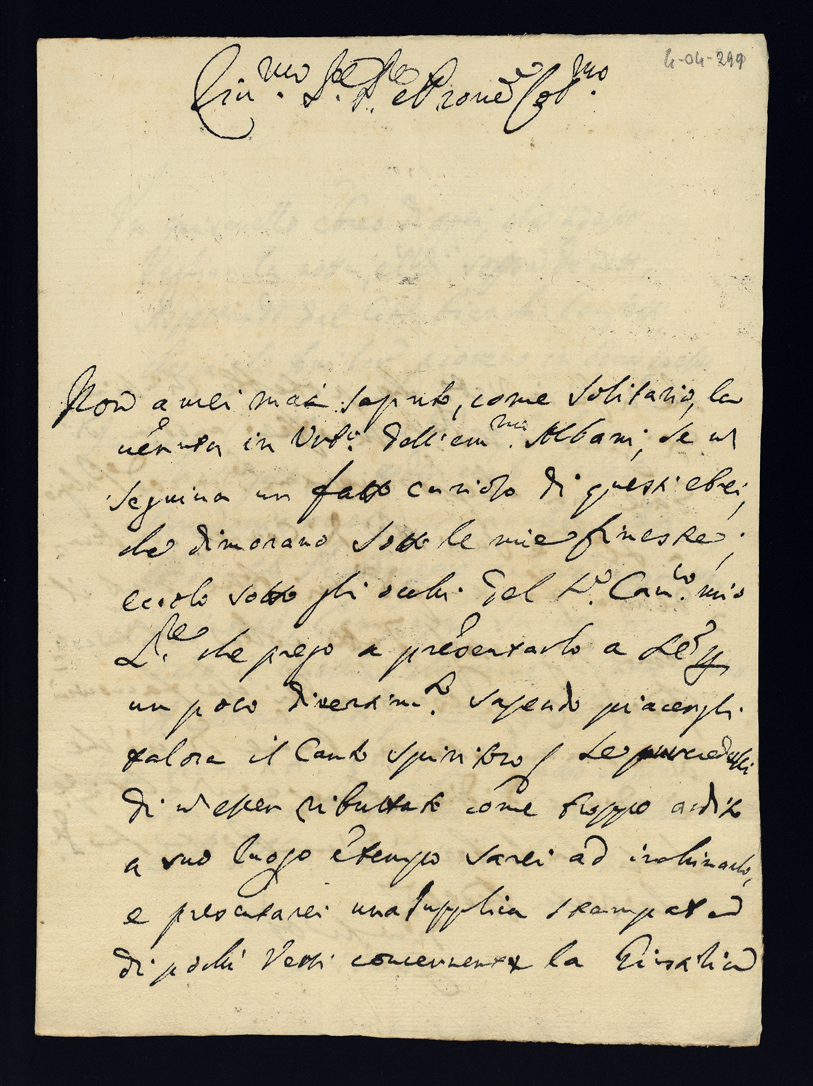 4-04-299
Riv.mo Sr. Sr. e Prone Col.mo
Non averei mai saputo, come solitario, la
venuta in Urb.o dell'em.mo Albani, se n
seguiva un fatto curioso di questi ebrei,
che dimorano sotto le mie finestre;
eccolo sotto gli occhi del Sr. Can.co mio
Sre. che prego a presentarlo a
un poco divertim.to sapendo piacergli
talora il Canto spiritoso / se
di n esser ributtato come troppo ardito
a suo luogo e tempo sarei ad inchinarlo,
e presentarei una supplica stampata
di pochi Versi concernente la Giustizia